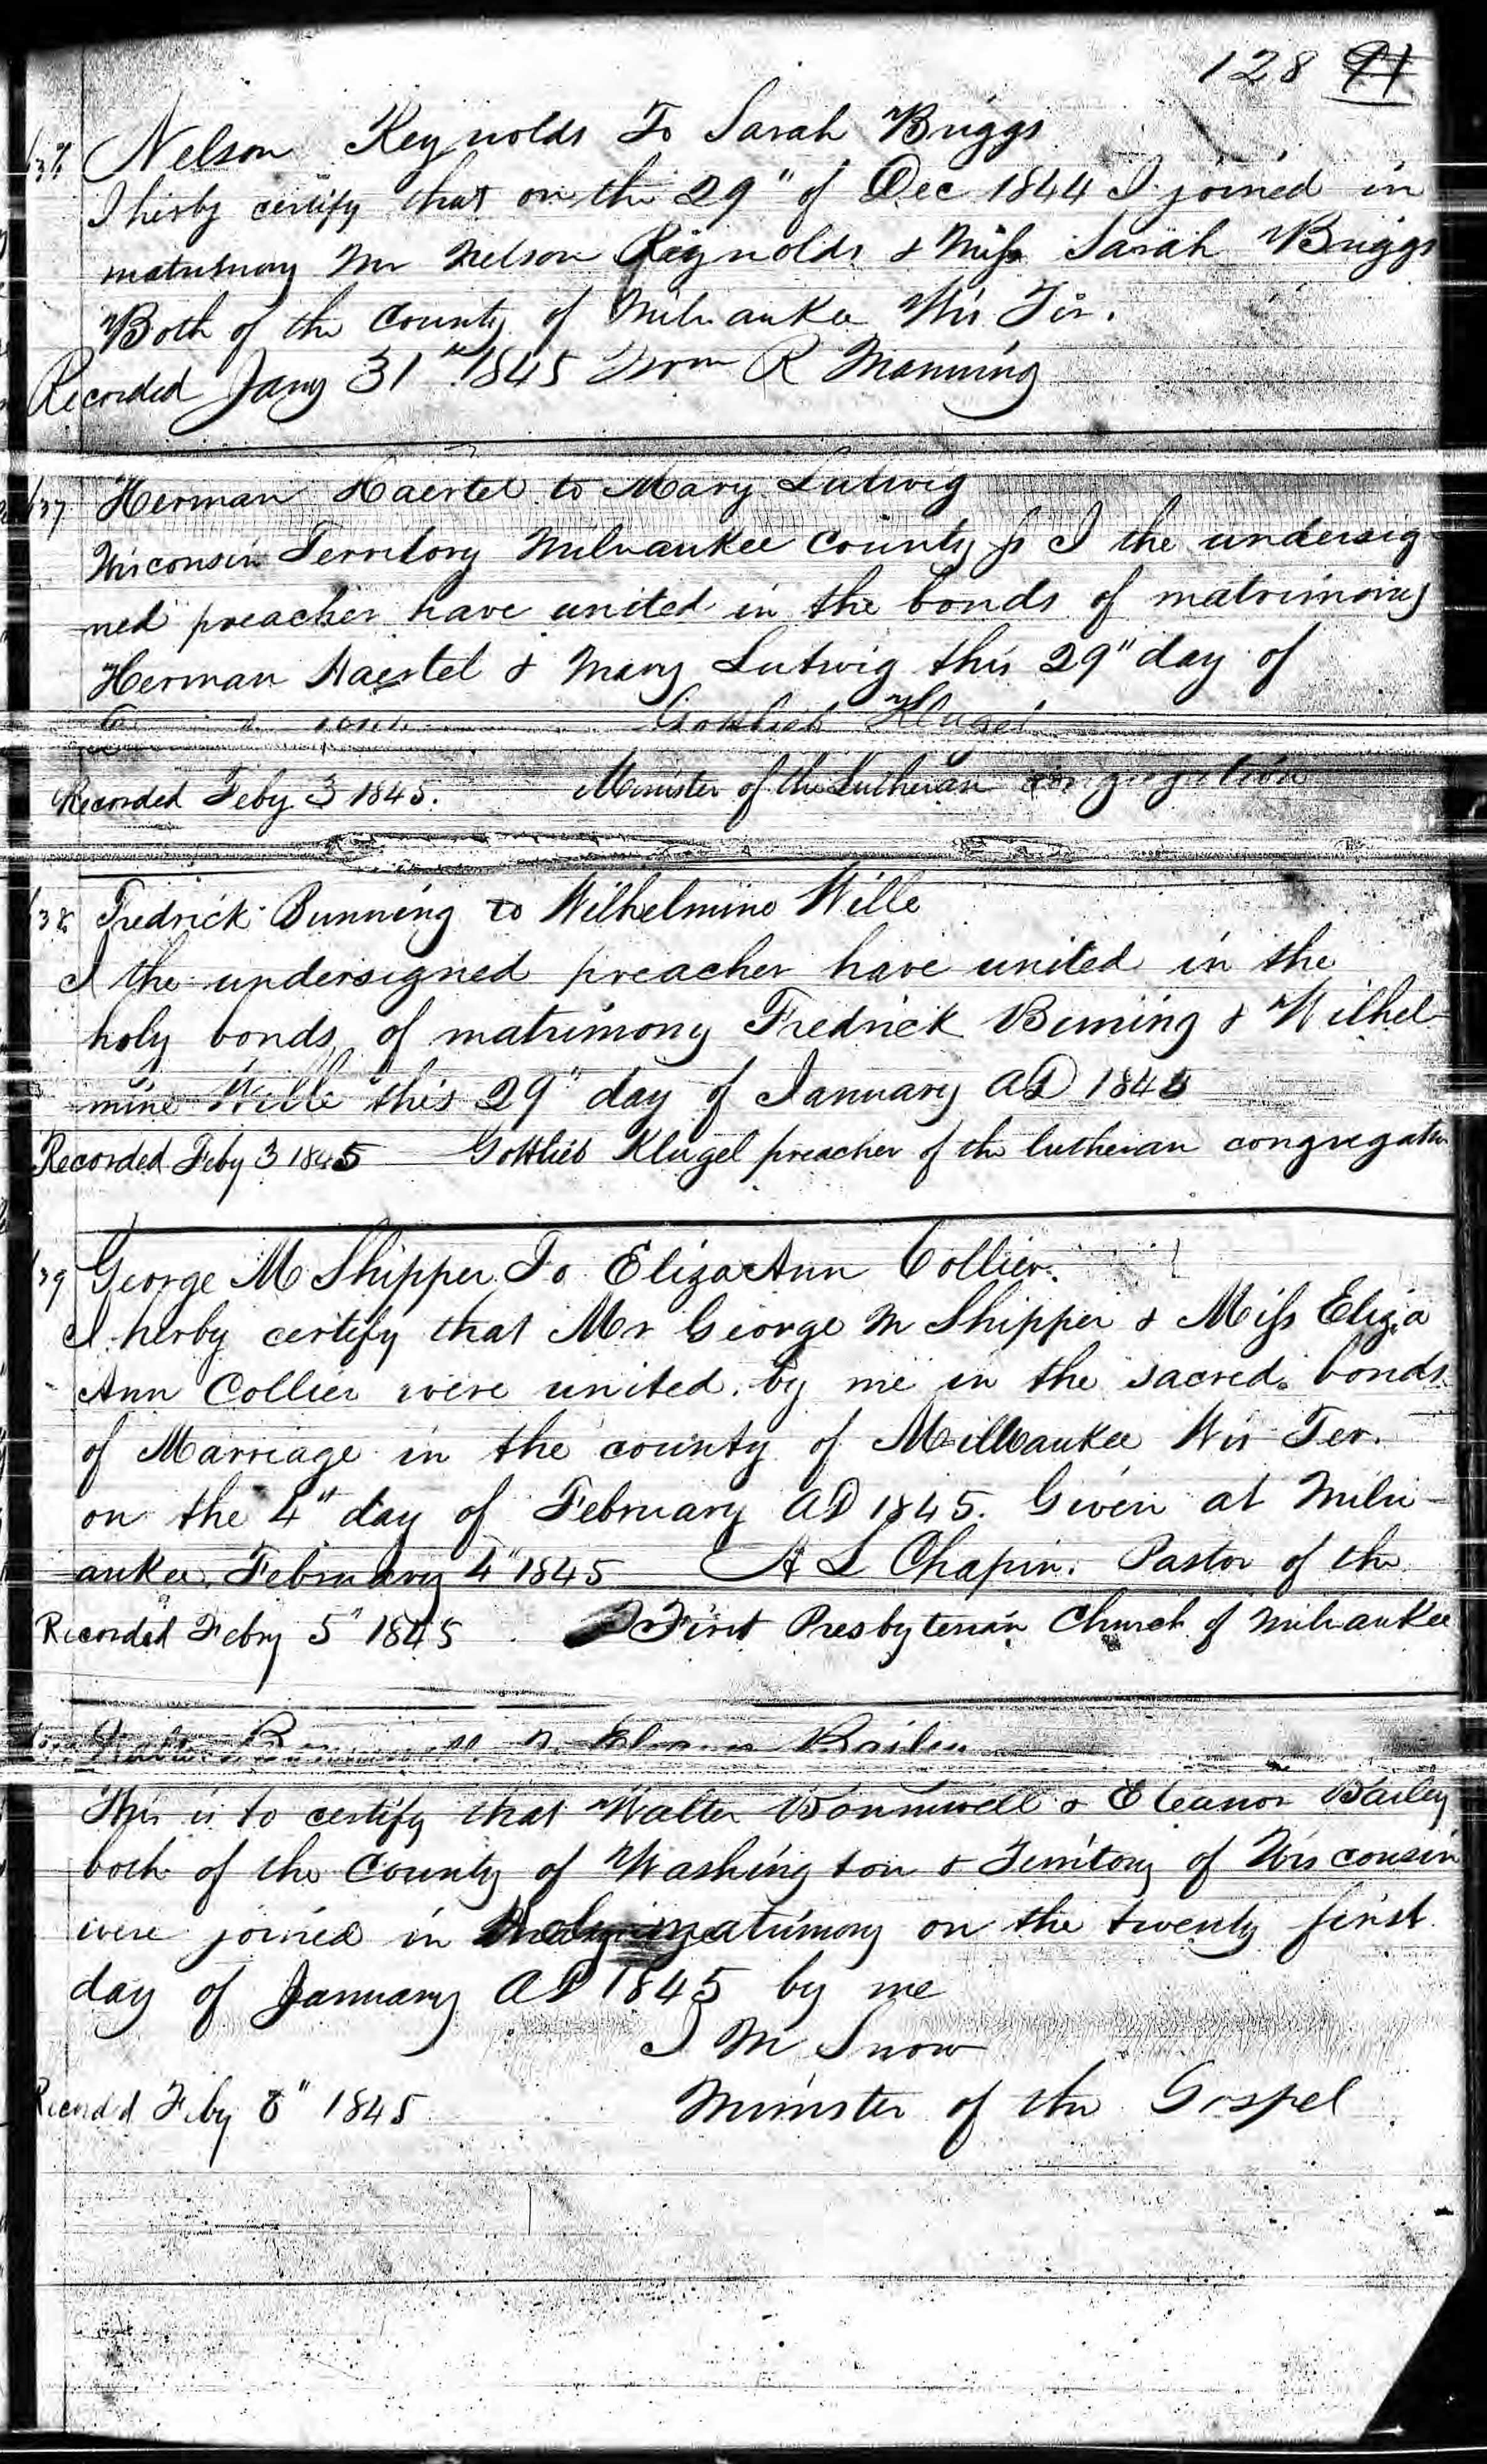 128 91
Nelson Reynolds To Sarah Briggs
I herby certify that on the 29" of Dec 1844 I joined in
matrimony Mr Nelson Reynolds & Miss Sarah Briggs
Both of the County of Milwaukee Wis Ter.
Recorded Jany 31 1845 Wm R Manning
137 Herman Haertel to Mary Lutwig
Wisconsin Territory Milwaukee County ss I the undersig
ned preacher have united in the bonds of matrimony
Herman Haertel & Mary Lutwig this 29" day of
Gottlieb Klugel
Recorded Feby 3 1845. Minister of the Lutheran congregation
138 Fredrick Bunning to Wilhelmine Wille
I the undersigned preacher have united in the
holy bonds of matrimony Fredrick Bunning & Wilhel-
mine Wille this 29" day of January AD 1845
Recorded Feby 3 1845 Gottlieb Klugel preacher of the lutheran congregation
139 George M Shipper To Eliza Ann Collier.
I herby certify that Mr George M Shipper & Miss Eliza
Ann Collier were united by me in the sacred bonds
of Marriage in the county of Milwaukee Wis Ter.
on the 4" day of February AD 1845. Given at Milw-
aukee February 4" 1845 A L Chapin. Pastor of the
Recorded Febry 5" 1845 First Presbyterian Church of Milwaukee
Walter Bailey
This is to certify that Walter Bonniwell & Eleanor Bailey
both of the County of Washington & Territory of Wisconsin
were joined in Holy matrimony on the twenty first
day of January AD 1845 by me
I M Snow
Recordd Feby 8" 1845 Minister of the Gospel